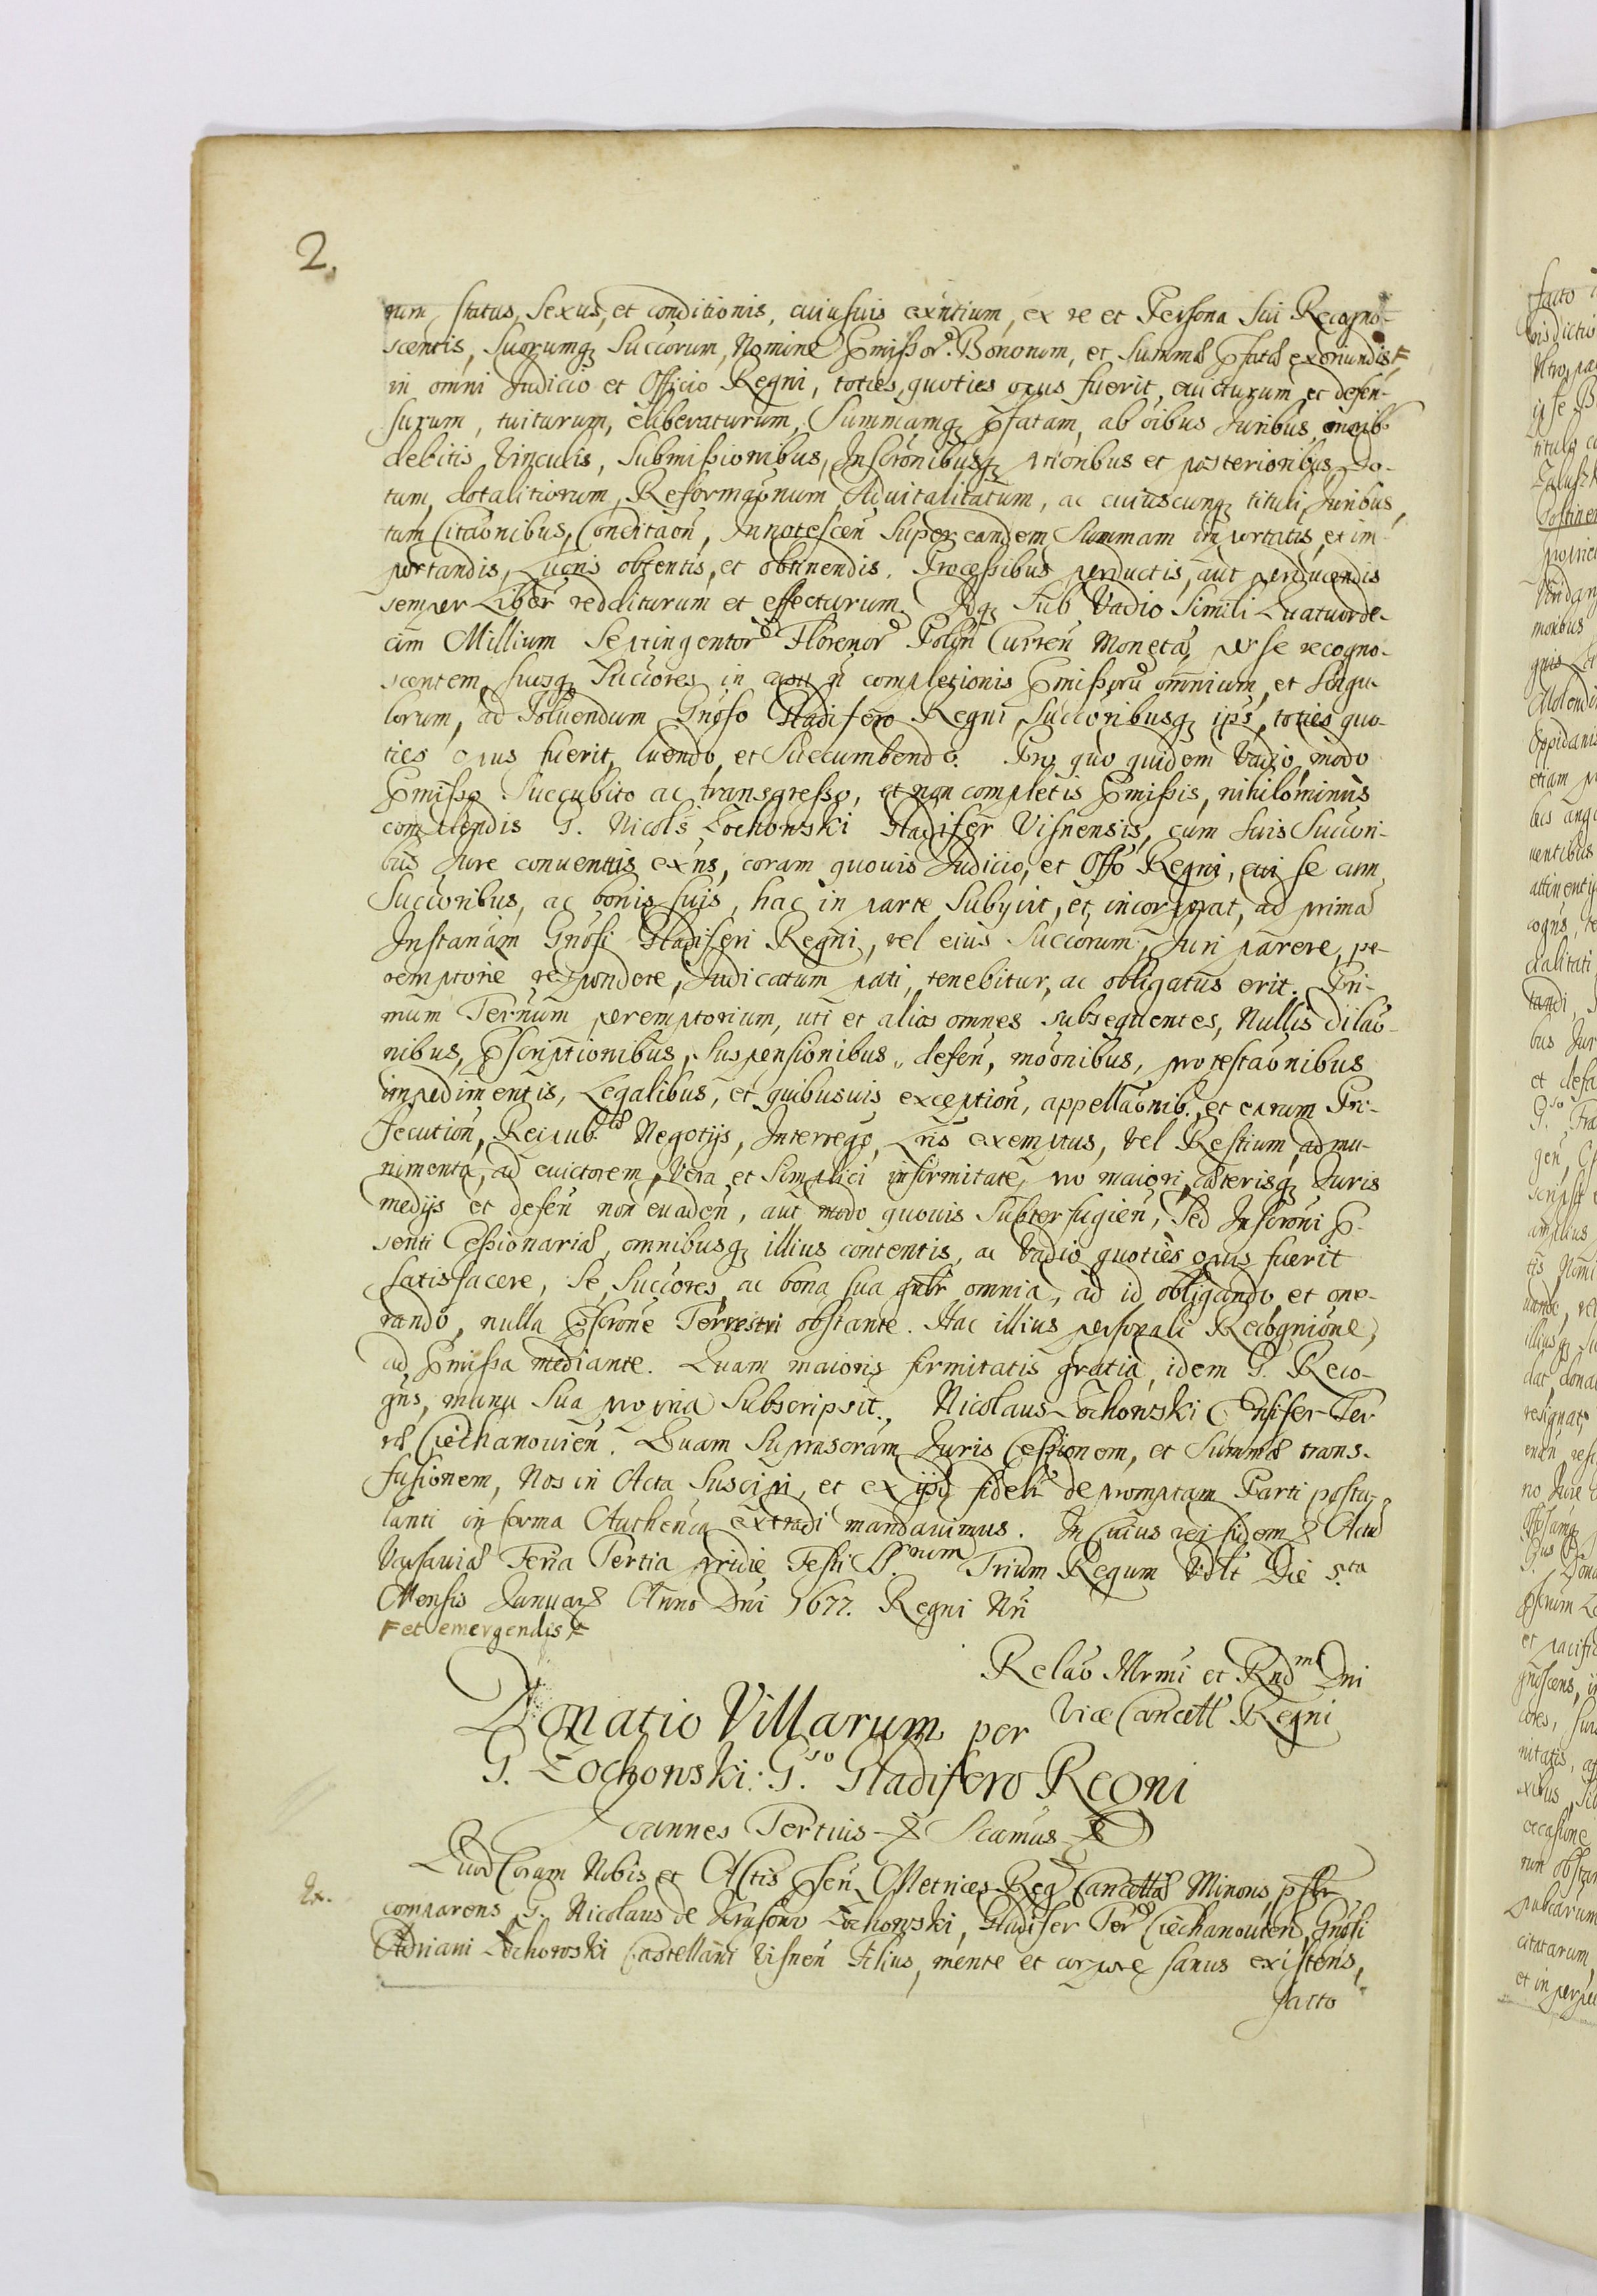 2.
rum, status, Sexus, et conditionis, cuiusuis exñtium, ex re et Persona Sui Recogno-
scentis, Suorumq Succorum, Nomine Pmissor. Bonorum, et Summæ Pfatæ exoriundis F
in omni Judicio et Officio Regni, toties, quoties opus fuerit, euicturum, et defen-
surum, tuiturum, eliberaturum, Summamq Pfatam, ab oibus Juribus, onerib
debitis Vinculis, Submissionibus, Inscronibusq prioribus et posterioribus, Do-
tum, dotalitiorum, Reformaonum Aduitalitatum, ac cuiuscunq tituli Juribus,
tum Citaonibus, Conditaoñ, Innotescen Super eandem Summam importatis, et im-
portandis, Lucris obtentis, et obtinendis. Processibus perductis, aut perducendis
semper Liber redditurum et effecturum. Idq Sub Vadio Simili Quatuorde-
cim Millium Septingentor Florenor Polñ Curren Monetæ, per se recogno-
scentem, suosq Succores in casu ñ completionis Pmissorũ omnium, et Singu-
lorum, ad Soluendum Gnoso Gladifero Regni, Succoribusq ips, toties quo-
ties opus fuerit, luendo, et Succumbendo. Pro quo quidem Vadio, modo
Pmisso Succubito ac transgresso, et non completis Pmissis, nihilominùs
complendis G. Nicols Łochowski Gladifer Visnensis, cum Suis Succori-
bus Jure conuentus exñs, coram quouis Judicio, et Offo Regni, cui se cum
Succoribus, ac bonis suis, hac in parte Subijcit, et incorporat, ad primã
Instanãm Gnosi Gladiferi Regni, vel eius Succorum, Juri parere, pe-
remptorie respondere, Judicatum pati, tenebitur, ac obligatus erit. Pri-
mum Ternum peremptorium, uti et alios omnes subsequentes, Nullis dilao-
nibus, Pscriptionibus, Suspensionibus, defen, moonibus, protestaonibus
impedimentis, Legalibus, et quibusuis exception, appellaonib. et earum Pro-
secution, Reipub. Negotijs, Interregõ, Lris exemptus, vel Restium, ad mu-
nimenta, ad euictorem, Vera et Simplici infirmitate, pro maiori, cæterisq Juris
medijs et defen non euaden, aut modo quouis Subterfugien, Sed Inscroni P-
senti Cessionariæ, omnibusq illius contentis, ac Vadio quoties opus fuerit
satisfacere, Se, Succores, ac bona sua gnlr omnia, ad id obligando, et one-
rando, nulla Pscrone Terrestri obstante. Hac illius personali Recognione,
ad Pmissa mediante. Quam maioris firmitatis gratia, idem G. Reco-
gns, manu Sua propria Subscripsit. Nicolaus Łochowski Ensifer Ter
ræ Ciechanouien. Quam Suprascram Juris Cessionem, et Summæ trans-
fusionem, Nos in Acta Suscipi, et ex ijs fidelr depromptam Parti postu-
lanti in forma Authenca extradi mandauimus. In Cuius rei fidem & Actũ
Varsauiæ Feria Tertia pridie Festi SS.rum Trium Regum Vidlt Die 5.ta
Mensis Januarij Anno Dni 1677. Regni Nri
F et emergendis F
Relao Illrmi et Rndmi Dni
Vice Cancell Regni
Donatio Villarum per
G. Łochowski: G.so Gladifero Regni
Joannes Tertius & Scamus &
Quod Coram Nobis et Actis Psen Metrices Reg Cancellæ Minoris, pslr
Ex.
comparens G. Nicolaus de Krusono Łochowski, Gladifer Ter Ciechanouien, Gnosi
Adriani Łochowski Castellani Visnen Filius, mente et corpore sanus existens,
facto